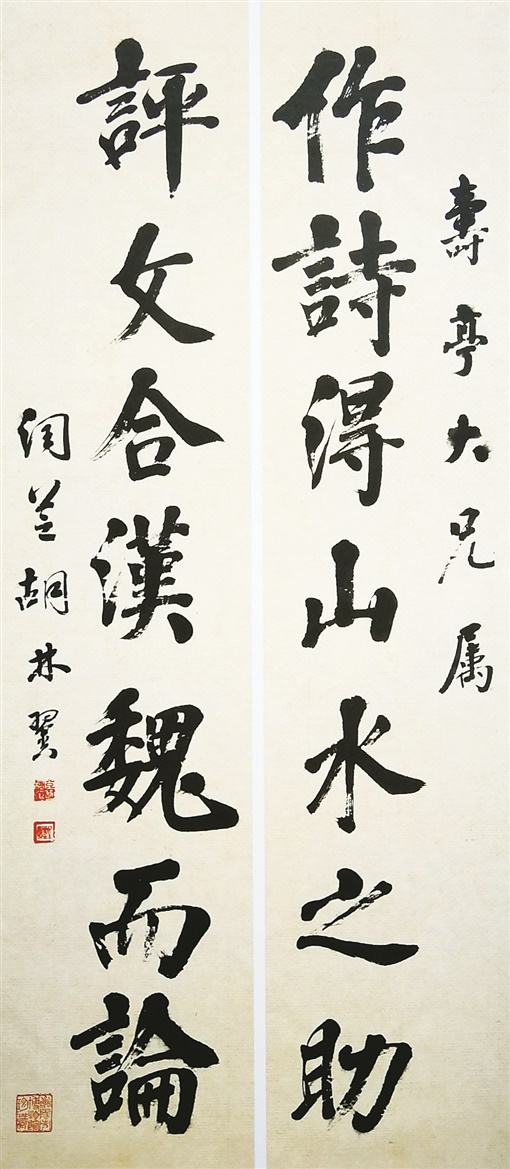 壽亭大兄属
作詩得山水之助
評文合漢魏而論
潤芝胡林翼